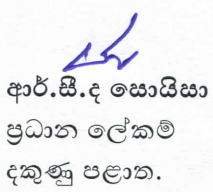 ආර්.සී.ද සොයිසා
ප්‍රධාන ලේකම්
දකුණු පළාත.